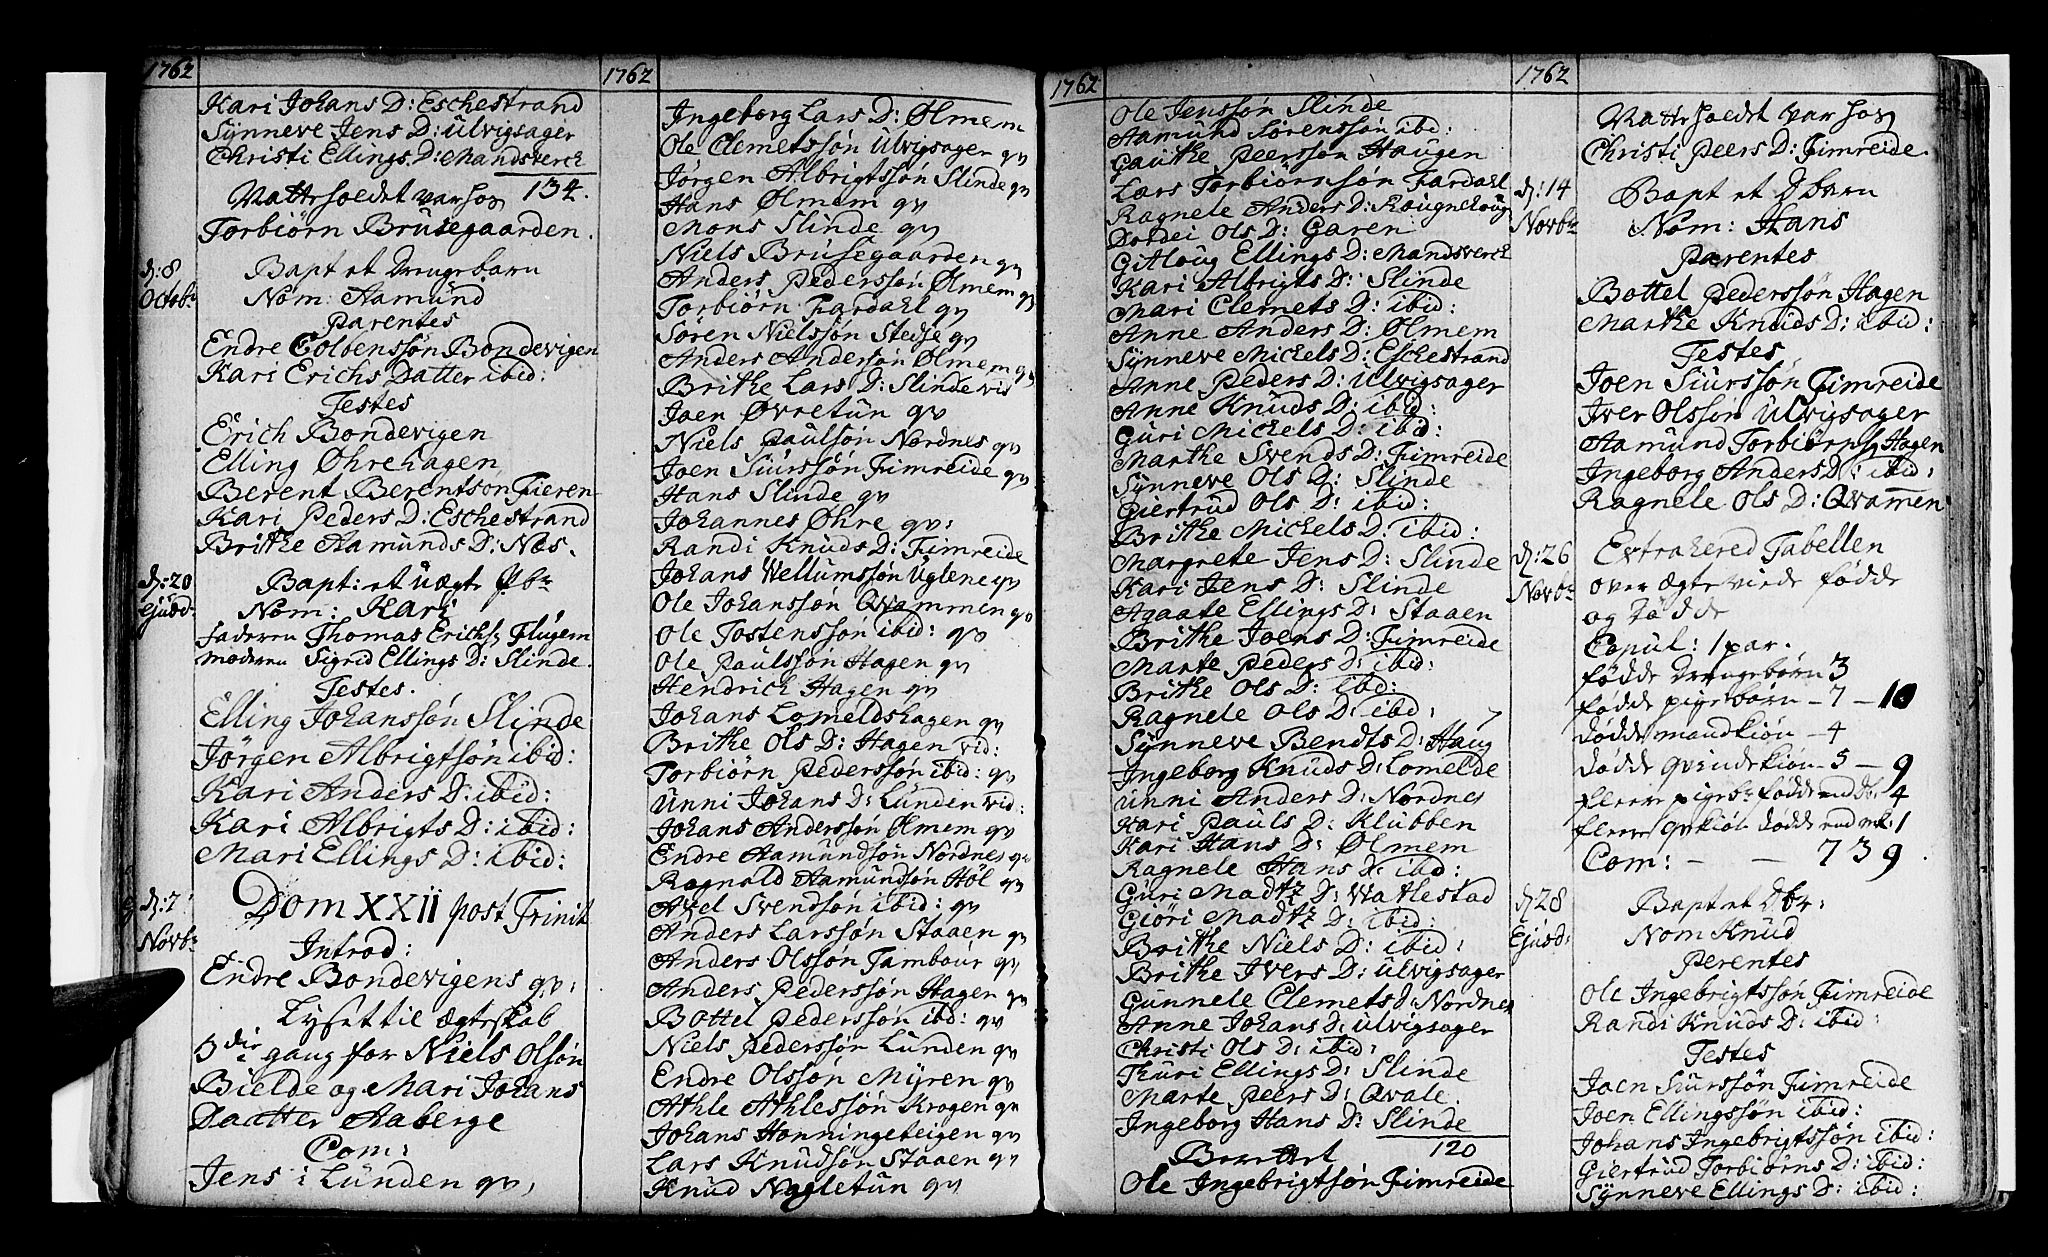 1762
Kari Johans D: Eschestrand
Synneve Jens D: Ulvigsager
Christi Ellings D: Mandsverck
134.
var hos
Torbiörn Brusegaarden.
d: 8
Octobr
Bapt et Drengebarn
Nom: Aamund
Parentes
Endre Colbenssön Bondevigen
Kari Erichs Datter ibid:
Testes
Erich Bondevigen
Elling Øhrehagen
Berent Berentson Fieren
Kari Peders D: Eschestrand
Brithe Aamunds D: Næs.
d: 20
Ejusd:
Bapt: et uægte
Nom: Kari
Faderen Thomas Erichs Flugem
Moderen Sigrid Ellings D: Slinde.
Testes.
Elling Johanssön Slinde
Jörgen Albrigtsön ibid:
Kari Anders D: ibid:
Kari Albrigts D: ibid:
Mari Ellings D: ibid:
d: 7
Novbr
Dom XXII post Trinit
Introd:
Endre Bondevigens qv:
Lyset til Ægteskab
3die gang for Niels Olsön
Bielde og Mari Johans
Daatter Aaberge
Com:
Jens i Lunden qv,
1762
Ingeborg Lars D: Ølmem
Ole Clemetssön Ulvigsager qv
Jörgen Albrigtssön Slinde qv
Hans Ølmem qv
Mons Slinde qv
Niels Brusegaarden qv
Anders Pederssön Ølmem qv
Torbiörn Fardahl qv
Sören Nielssön Stedje qv
Anders Andersön Ølmem qv
Brithe Lars D: Slinde vis
Joen Øvretun qv
Niels Paulsön Nordnes qv
Joen Siurssön Fimreide qv
Hans Slinde qv
Johannes Øhre qv:
Randi Knuds D: Fimreide
Johans Wellumssön Uglene qv
Ole Johanssön Qvammen qv
Ole Tostenssön ibid: qv
Ole Paulssön Hagen qv
Hendrich Hagen qv
Johans Lomeldshagen qv
Brithe Ols D: Hagen vid:
Torbiörn Pederssön ibid: qv
Unni Johans D: Lunden vid:
Johans Anderssön Ølmem qv
Endre Aamundsön Nordnes qv
Ragnald Aamundsön Höl qv
Axel Svendsön ibid: qv
Anders Larssön Staaen qv
Anders Olsson Tambour qv
Anders Pederssön Hagen qv
Bottel Pederssön ibd: qv
Niels Pederssön Lunden qv
Endre Olssön Myren qv
Athle Athlessön Krogen qv
Johans Honningeteigen qv
Lars Knudsön Staaen qv
Knud Nagletun qv
1762
Ole Jenssön Slinde
Aamund Sörenssön ibid:
Gauthe Peerssön Haugen
Lars Torbiörnsön Fardahl
Ragnele Anders D: Raugnehoug
Dordei Ols D: Garen
Gitloug Ellings D: Mandsverck
Kari Albrigts D: Slinde
Mari Clemets D: ibid:
Anne Anders D: Ølmem
Synneve Michels D: Eschestrand
Anne Peders D: Ulvigsager
Anne Knuds D: ibid:
Guri Michels D: ibid:
Marthe Svends D: Fimreide
Synneve Ols D: Slinde
Giertrud Ols D: ibid:
Brithe Michels D: ibid:
Margrete Jens D: Slinde
Kari Jens D: Slinde
Agaate Ellings D: Staaen
Brithe Joens D: Fimreide
Marte Peders D: ibid:
Brithe Ols D: ibid:
Ragnele Ols D: ibid:
Synneve Bendts D: Haug
Ingeborg Knuds D: Lomelde
Unni Anders D: Nordnes
Kari Pauls D: Klubben
Kari Hans D: Ølmem
Ragnele Hans D: ibid:
Guri Madtz D: Wathestad
Giöri Madtz D: ibid:
Brithe Niels D: ibid:
Brithe Ivers D: Ulvigsager
Gunnele Clemets D: Nordnes
Anne Johans D: Ulvigsager
Christi Ols D: ibid:
Thuri Ellings D: Slinde
Marte Peers D: Qvale.
Ingeborg Hans D: Slinde
120
Berettet
Ole Ingebrigtsön Fimreide
1762
var hos
Christi Peers D: Fimreide.
d: 14
Novbr
Bapt et D barn
Nom: Hans
Parentes
Bottel Pederssön Hagen
Marthe Knuds D: ibid:
Testes
Joen Siurssön Fimreide
Iver Olssön Ulvigsager
Aamund Torbiörns Hagen
Ingeborg Anders D: ibid:
Ragnele Ols D: Qvamen
d: 26
Novbr
Extrahered Tabellen
over ægteviede fødde
og Dødde
Copul: 1 par.
fødde Drengebörn 3
fødde pigebörn – 7 – 10
Dødde mandkiön – 4
Dødde qvindekiön – 5 – 9
fleere piger fødde end Db: 4
fleere qvkiön Dødde end mk: 1
Com: – – 739.
d: 28
Ejusd:
Bapt et Dbr:
Nom Knud
Perentes
Ole Ingebrigtssön Fimreide
Randi Knuds D: ibid:
Testes
Joen Siurssön Fimreide
Joen Ellingssön ibid:
Johans Ingebrigtssön ibid:
Giertrud Torbiörns D: ibid:
Synneve Ellings D: ibid: